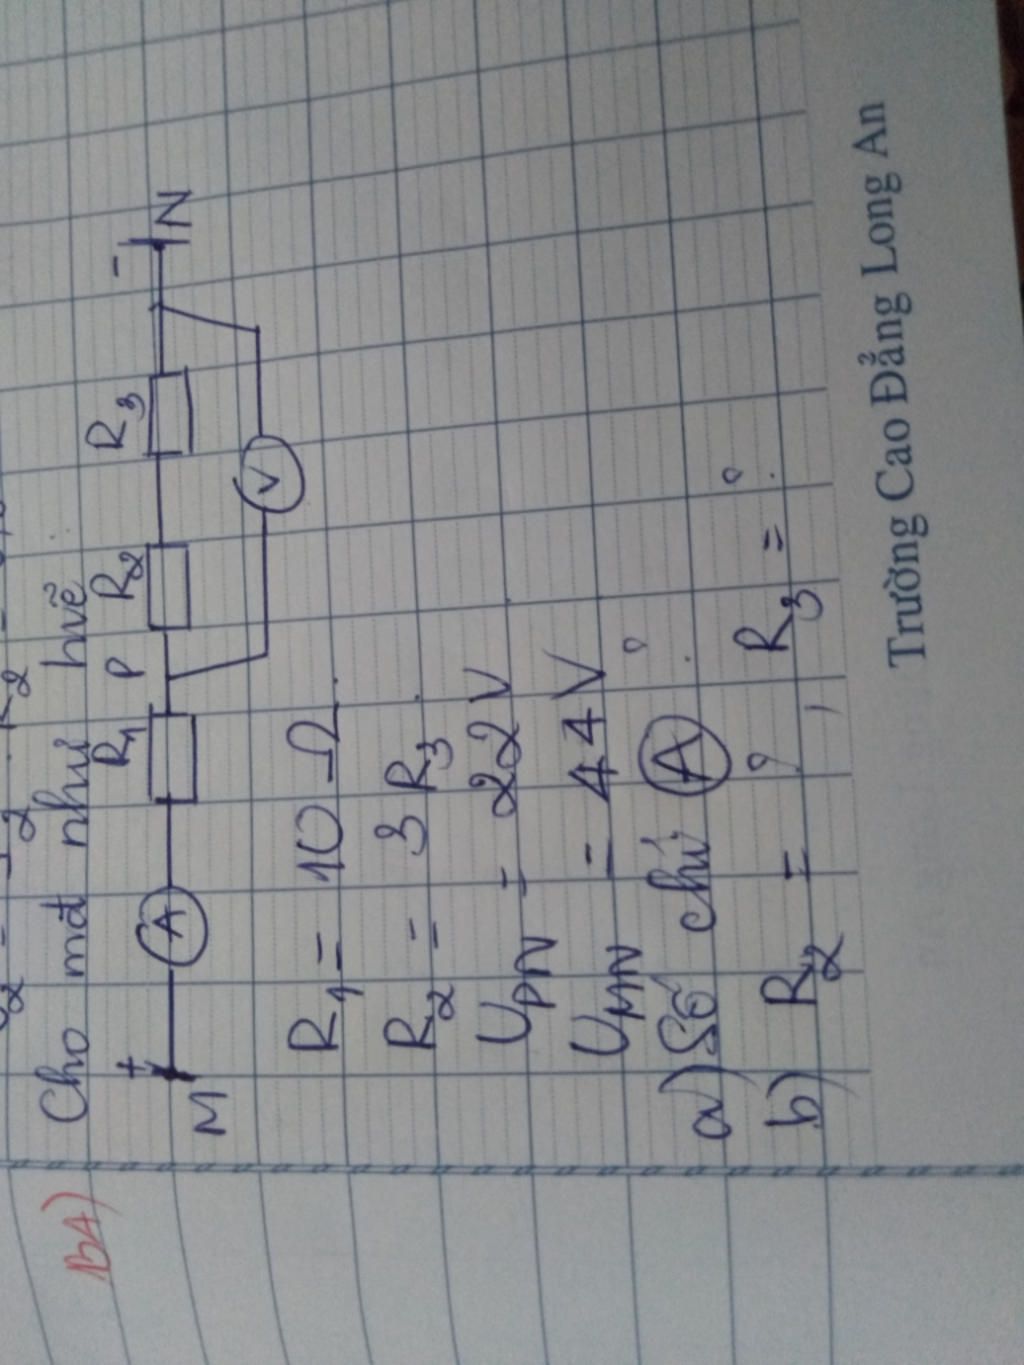 BA)
Cho mđ như hvẽ
+ A R1 P R2 R3 -
M V N
R1 = 10 Ω
R2 = 3 R3
UPN = 22 V
UMN = 44 V
a) Số chỉ A ?
b) R2 = ? , R3 = ?
Trường Cao Đẳng Long An